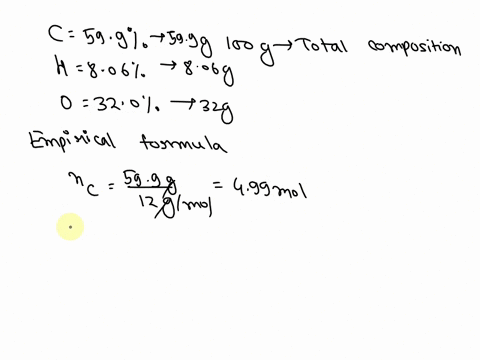 C = 59.9% → 59.9g 100 g → Total composition
H = 8.06% → 8.06g
O = 32.0% → 32g
Empirical formula
n_C = 59.9 g / 12 g/mol = 4.99 mol